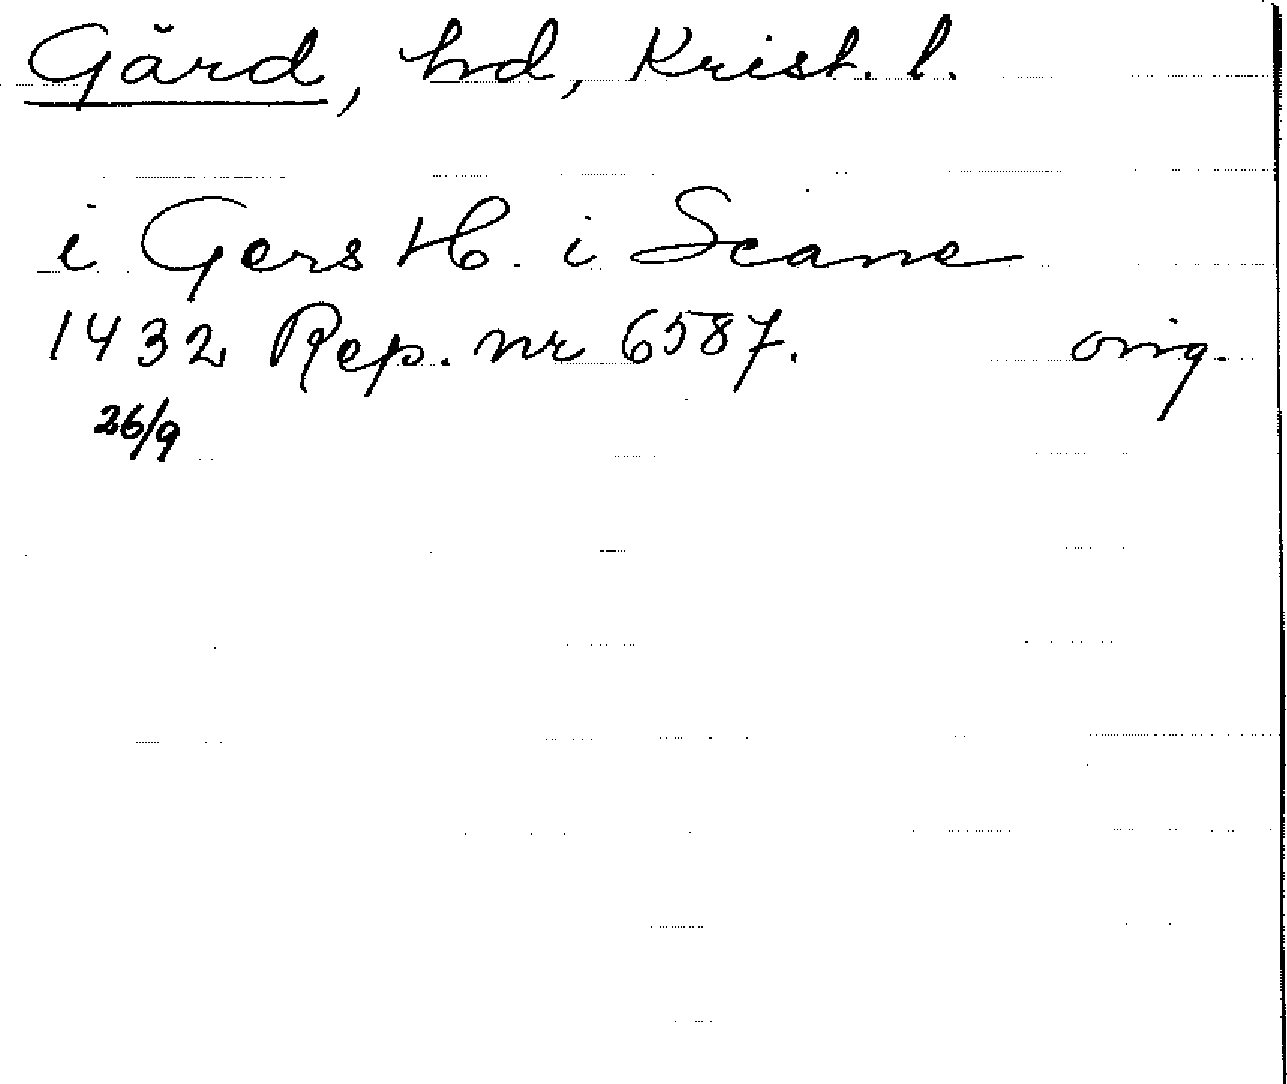 Gärd, hd, Krist. l.
i Gers H. i Scane
1432 Rep. nr 6587. orig.
26/9